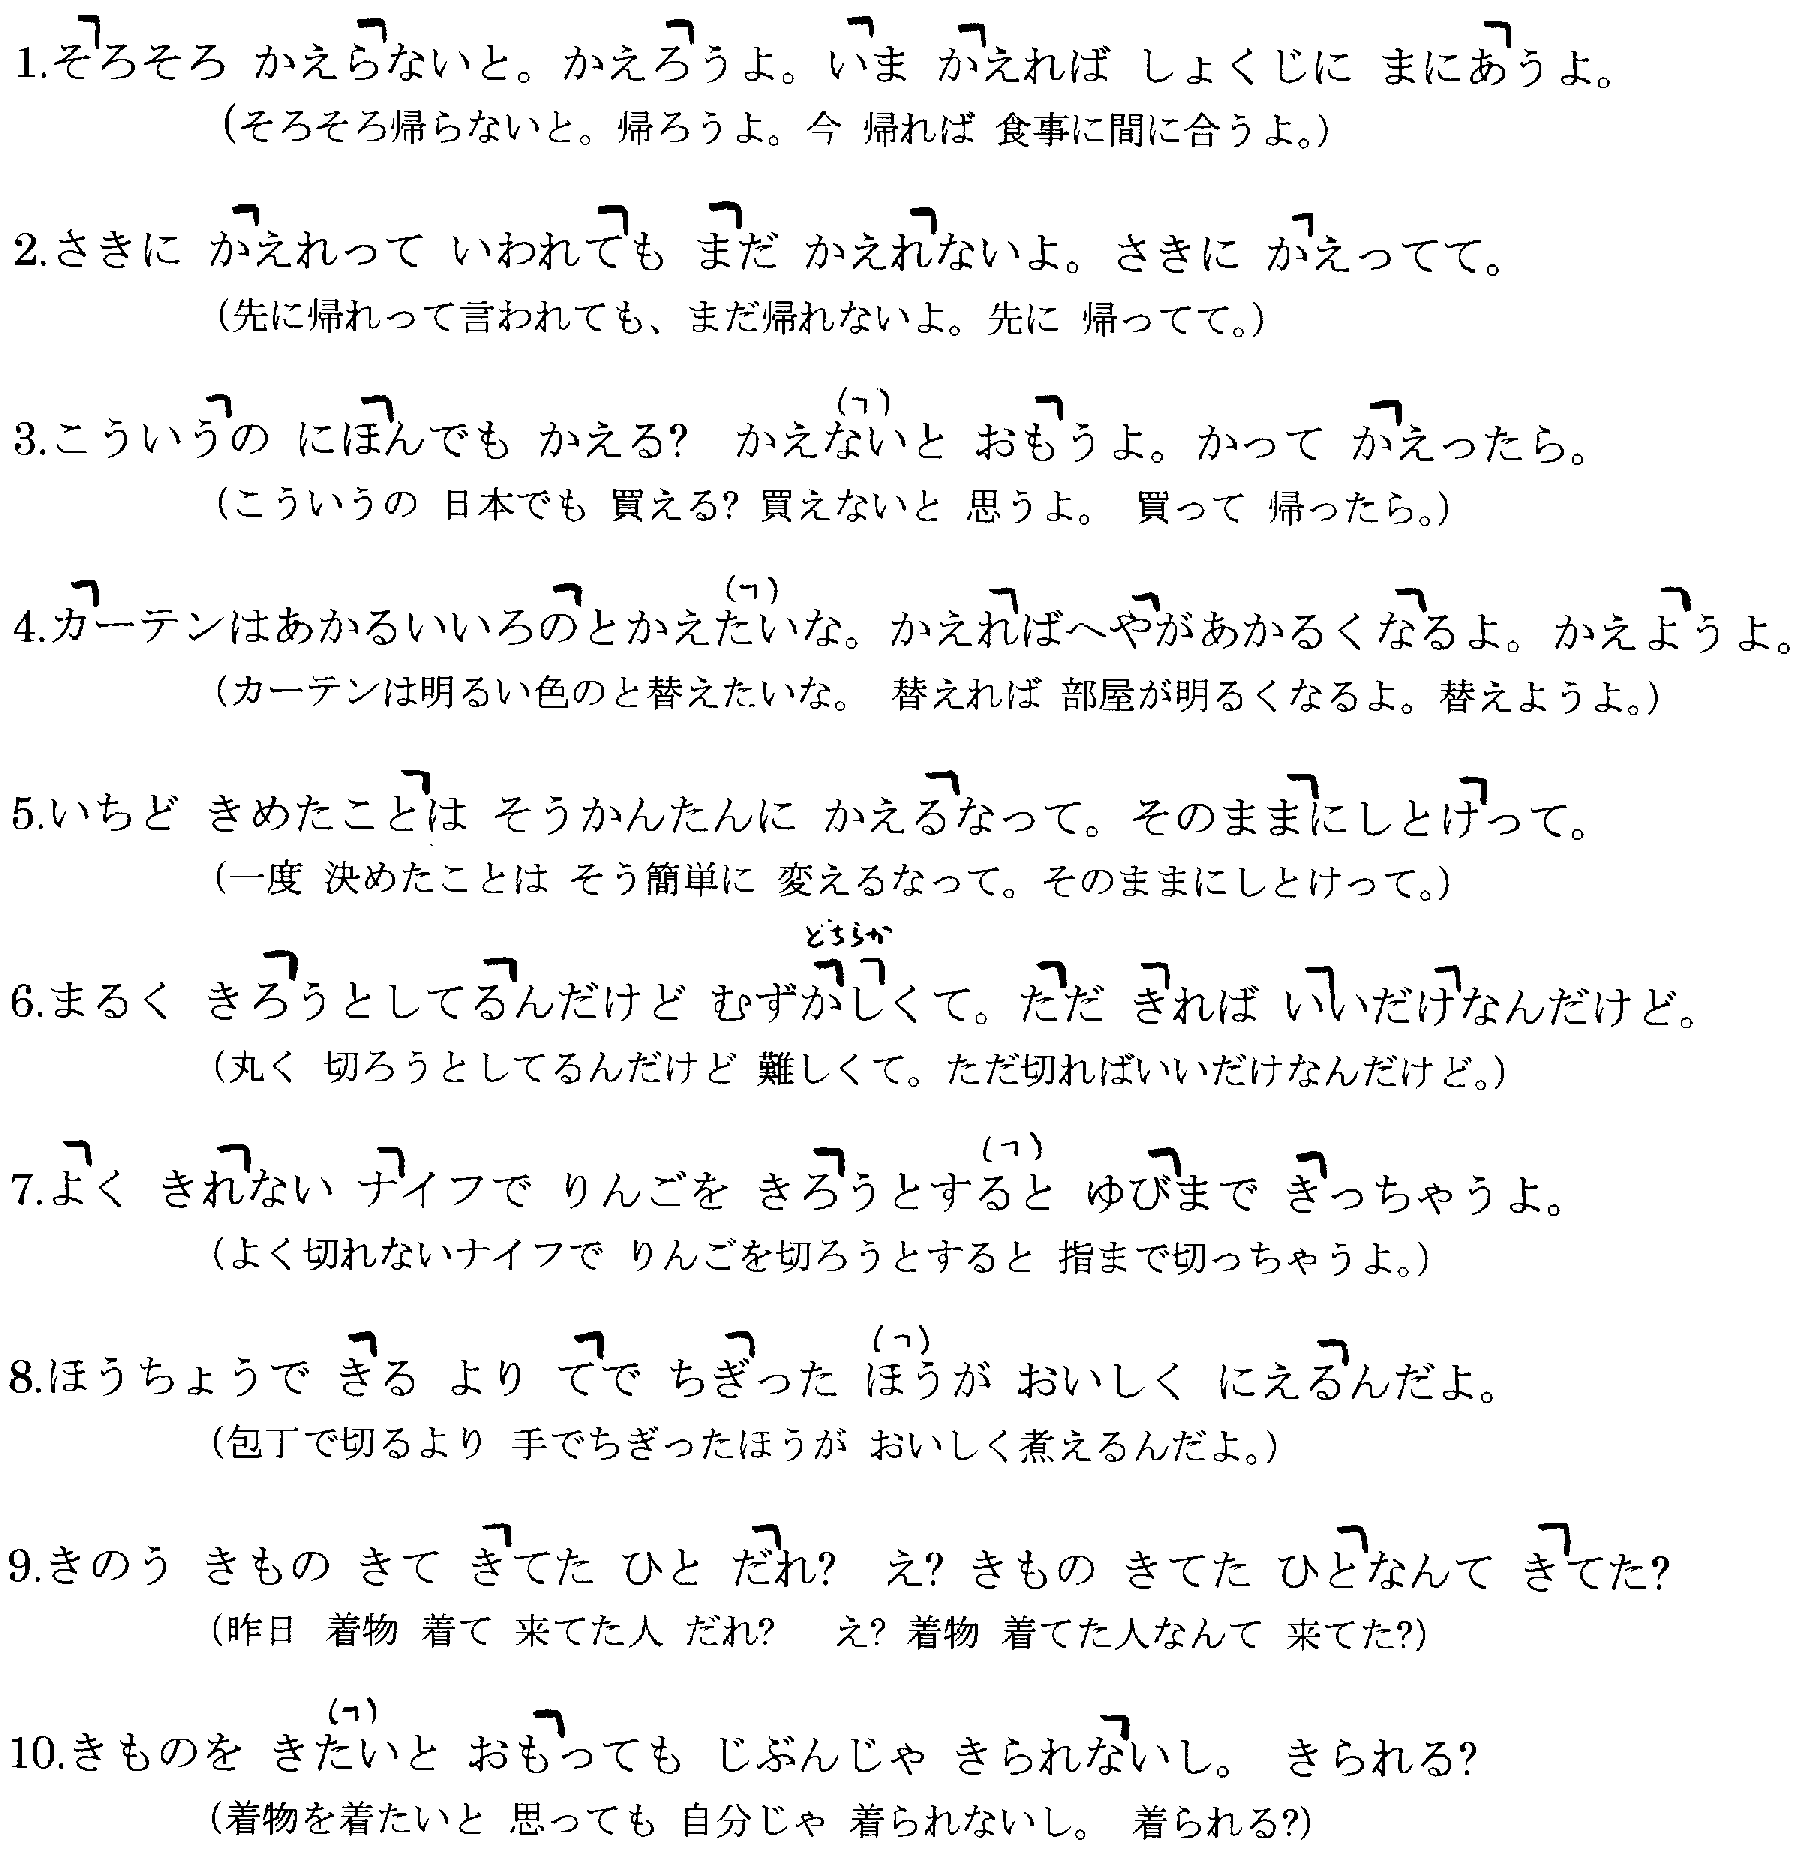 1.そろそろ かえらないと。かえろうよ。いま かえれば しょくじに まにあうよ。
(そろそろ帰らないと。帰ろうよ。今 帰れば 食事に間に合うよ。)
2.さきに かえれって いわれても まだ かえれないよ。さきに かえってて。
(先に帰れって言われても、まだ帰れないよ。先に 帰ってて。)
3.こういうの にほんでも かえる? かえないと おもうよ。かって かえったら。
(こういうの 日本でも 買える? 買えないと 思うよ。 買って 帰ったら。)
4.カーテンはあかるいいろのとかえたいな。かえればへやがあかるくなるよ。かえようよ。
(カーテンは明るい色のと替えたいな。 替えれば 部屋が明るくなるよ。替えようよ。)
5.いちど きめたことは そうかんたんに かえるなって。そのままにしとけって。
(一度 決めたことは そう簡単に 変えるなって。そのままにしとけって。)
どちらか
6.まるく きろうとしてるんだけど むずかしくて。ただ きれば いいだけなんだけど。
(丸く 切ろうとしてるんだけど 難しくて。ただ切ればいいだけなんだけど。)
7.よく きれない ナイフで りんごを きろうとすると ゆびまで きっちゃうよ。
(よく切れないナイフで りんごを切ろうとすると 指まで切っちゃうよ。)
8.ほうちょうで きる より てで ちぎった ほうが おいしく にえるんだよ。
(包丁で切るより 手でちぎったほうが おいしく煮えるんだよ。)
9.きのう きもの きて きてた ひと だれ? え? きもの きてた ひとなんて きてた?
(昨日 着物 着て 来てた人 だれ? え? 着物 着てた人なんて 来てた?)
10.きものを きたいと おもっても じぶんじゃ きられないし。 きられる?
(着物を着たいと 思っても 自分じゃ 着られないし。 着られる?)